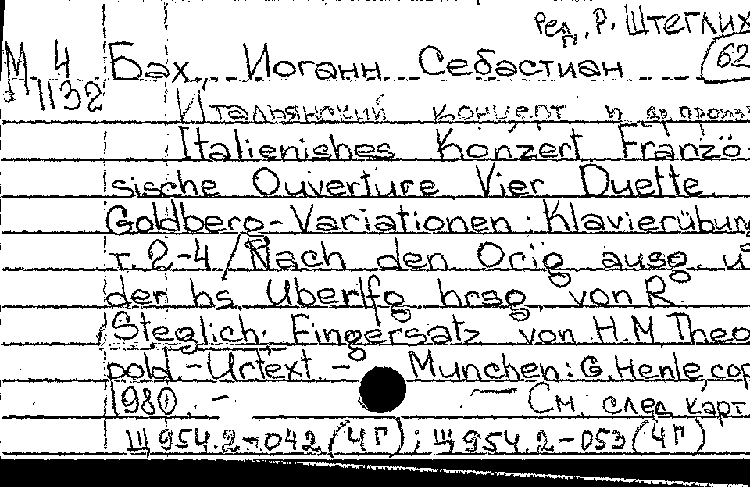 Ред. Р. Штеглих
М 4 Бах, Иоганн Себастиан 62
1132
Итальянский концерт и др. произв
Italienishes Konzert Franzö-
sische Ouverture Vier Duette
Goldberg-Variationen: Klavierübung
т. 2-4 / Nach den Orig ausg. u
der hs. Uberlfg hrsg von R
Steglich; Fingersatz von H.M. Theo
pold. - Urtext. - Munchen: G. Henle, cop
1980. - - См. след карт
Щ 954.2-042 (ЧГ); Щ 954.2-053 (ЧГ)